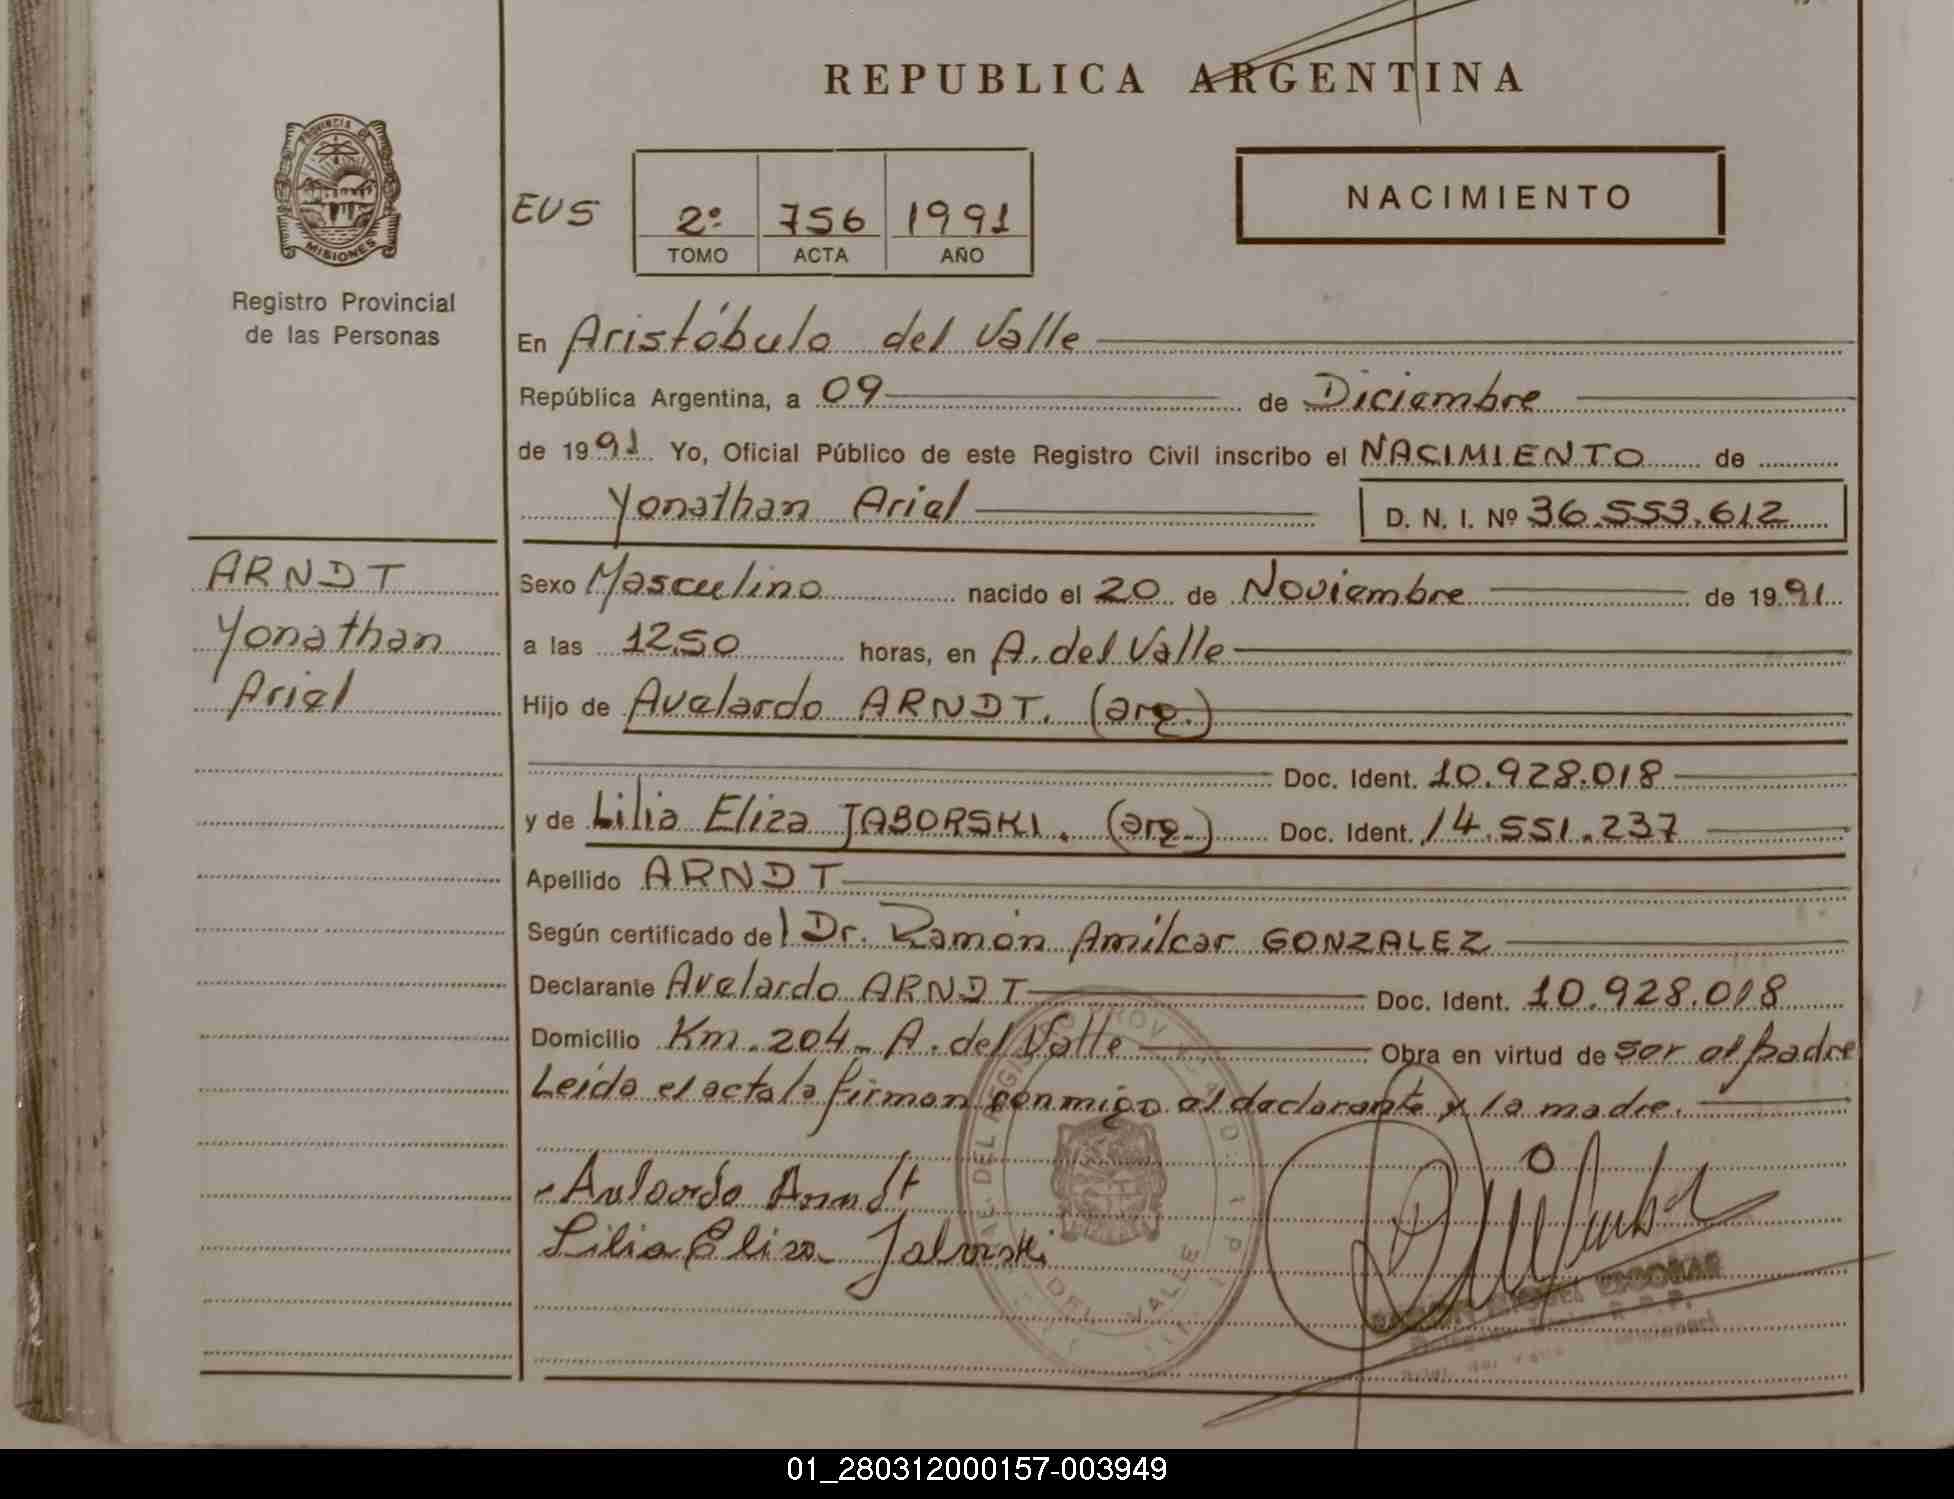 REPUBLICA ARGENTINA
PROVINCIA DE
MISIONES
Registro Provincial
de las Personas
EVS
2º 756 1991
TOMO ACTA AÑO
NACIMIENTO
En Aristóbulo del Valle
República Argentina, a 09 de Diciembre
de 1991 Yo, Oficial Público de este Registro Civil inscribo el NACIMIENTO de
Yonathan Ariel D. N. I. Nº 36.553.612
ARNDT
Yonathan
Ariel
Sexo Masculino nacido el 20 de Noviembre de 1991
a las 12.50 horas, en A. del Valle
Hijo de Avelardo ARNDT. (arg.)
Doc. Ident. 10.928.018
y de Lilia Eliza JABORSKI. (arg.) Doc. Ident. 14.551.237
Apellido ARNDT
Según certificado del Dr. Ramón Amílcar GONZALEZ
Declarante Avelardo ARNDT Doc. Ident. 10.928.018
Domicilio Km. 204 - A. del Valle Obra en virtud de ser el padre
Leída el acta la firman conmigo el declarante y la madre.
Avelardo Arndt
Lilia Eliza Jaborski
DEL VALLE
ESCOBAR
01_280312000157-003949